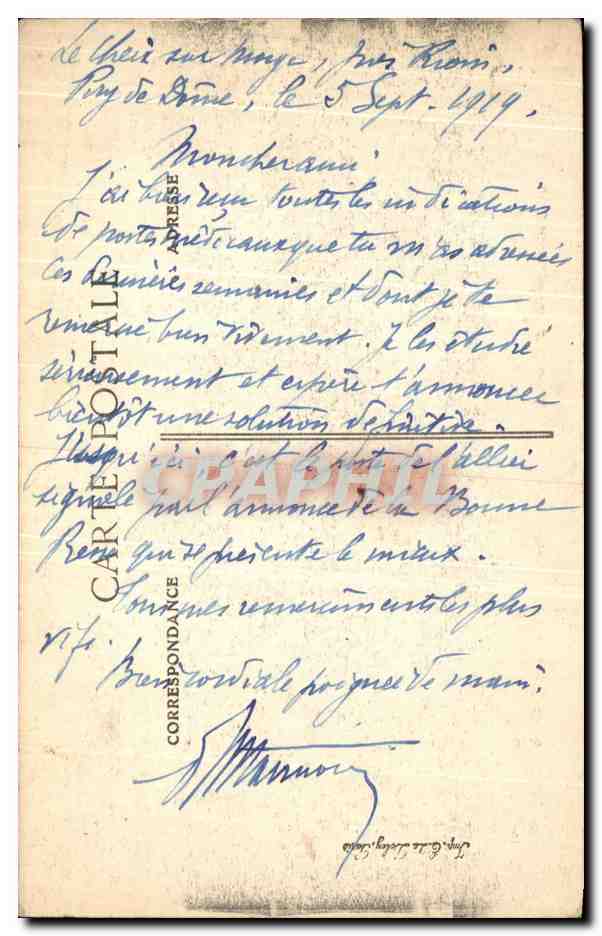 Le Cheix sur Morge, près Riom,
Puy de Dôme, le 5 Sept. 1919.
Mon cher ami
J'ai bien reçu toutes les indications
de postes médicaux que tu m'as adressées
ces dernières semaines et dont je te
remercie bien vivement. Je les étudie
sérieusement et espère t'annoncer
bientôt une solution définitive.
Jusqu'ici, c'est le poste de l'Allier
signalé par l'annonce de la Bonne
Presse qui se présente le mieux.
Tous mes remerciements les plus
vifs.
Bien cordiale poignée de main.
CARTE POSTALE
CORRESPONDANCE
ADRESSE
CPAPHIL
Imp. E. Le Deley, Paris